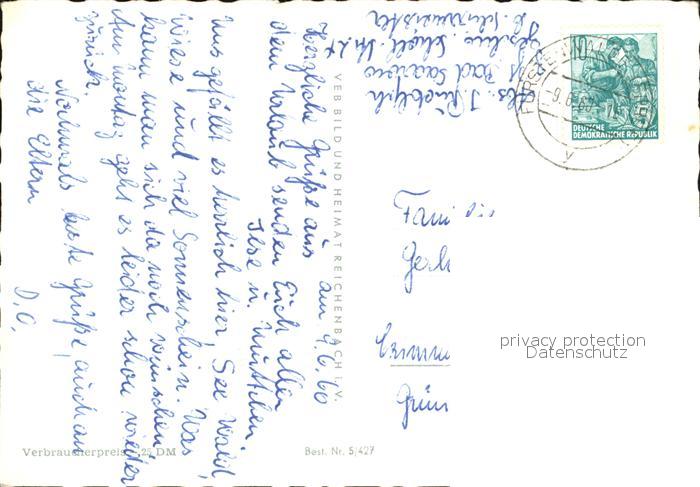 am 9.6.60
Herzliche Grüße aus
dem Urlaub senden Euch allen
Ilse u. Muttchen.
Uns gefällt es herrlich hier, See Wald,
Wiese und viel Sonnenschein. Was
kann man sich da noch wünschen
Am Montag geht es leider schon wieder
zurück.
Nochmals beste Grüße, auch an
die Eltern D. O.
Abs. J. Rudolph
Bad Saarow
VEB BILD UND HEIMAT REICHENBACH i. V.
10
DEUTSCHE
DEMOKRATISCHE REPUBLIK
FÜRSTENWALDE
Fami
Gerh
Crimm
Grün
privacy protection
Datenschutz
Verbraucherpreis -,25 DM
Best. Nr. 5/427